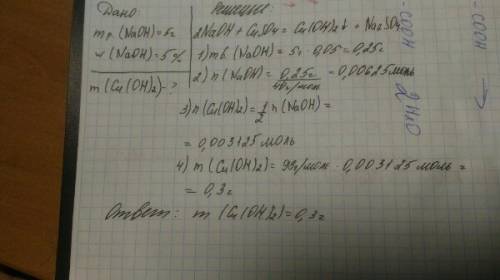 Дано:
mр. (NaOH) = 5г
w (NaOH) = 5 %
m (Cu(OH)2) - ?
Решение:
2NaOH + CuSO4 = Cu(OH)2↓ + Na2SO4
1) mв. (NaOH) = 5г · 0,05 = 0,25г
2) n (NaOH) = 0,25г / 40г/моль = 0,00625 моль
3) n (Cu(OH)2) = 1/2 n (NaOH) =
= 0,003125 моль
4) m (Cu(OH)2) = 99г/моль · 0,003125 моль =
= 0,3г
Ответ: m (Cu(OH)2) = 0,3г
-COOH
-COOH
2H2O
→